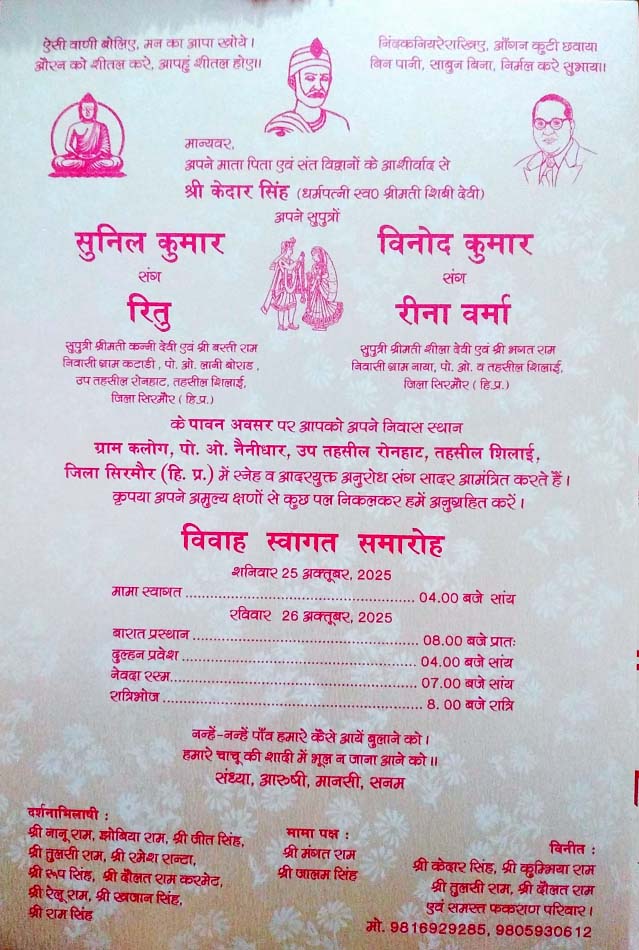 ऐसी वाणी बोलिए, मन का आपा खोये।
औरन को शीतल करे, आपहुं शीतल होए॥
निंदक नियरे राखिए, आँगन कुटी छवाय।
बिन पानी, साबुन बिना, निर्मल करे सुभाय॥
मान्यवर,
अपने माता पिता एवं संत विद्वानों के आशीर्वाद से
श्री केदार सिंह (धर्मपत्नी स्व0 श्रीमती शिबी देवी)
अपने सुपुत्रों
सुनिल कुमार
संग
रितु
सुपुत्री श्रीमती कन्नी देवी एवं श्री बस्ती राम
निवासी ग्राम कटाडी, पो. ओ. लानी बोराड,
उप तहसील रोनहाट, तहसील शिलाई,
जिला सिरमौर (हि.प्र.)
विनोद कुमार
संग
रीना वर्मा
सुपुत्री श्रीमती शीला देवी एवं श्री भगत राम
निवासी ग्राम नाया, पो. ओ. व तहसील शिलाई,
जिला सिरमौर (हि.प्र.)
के पावन अवसर पर आपको अपने निवास स्थान
ग्राम कलोग, पो. ओ. नैनीधार, उप तहसील रोनहाट, तहसील शिलाई,
जिला सिरमौर (हि. प्र.) में स्नेह व आदरयुक्त अनुरोध संग सादर आमंत्रित करते हैं।
कृपया अपने अमुल्य क्षणों से कुछ पल निकलकर हमें अनुग्रहित करें।
विवाह स्वागत समारोह
शनिवार 25 अक्तूबर, 2025
मामा स्वागत ........ 04.00 बजे सांय
रविवार 26 अक्तूबर, 2025
बारात प्रस्थान ........ 08.00 बजे प्रातः
दुल्हन प्रवेश ........ 04.00 बजे सांय
नेवदा रस्म ........ 07.00 बजे सांय
रात्रिभोज ........ 8. 00 बजे रात्रि
नन्हें-नन्हें पाँव हमारे कैसे आयें बुलाने को।
हमारे चाचू की शादी में भूल न जाना आने को॥
संध्या, आरुषी, मानसी, सनम
दर्शनाभिलाषी :
श्री नानू राम, झोबिया राम, श्री जीत सिंह,
श्री तुलसी राम, श्री रमेश रान्टा,
श्री रूप सिंह, श्री दौलत राम करमेट,
श्री रेलू राम, श्री खजान सिंह,
श्री राम सिंह
मामा पक्ष :
श्री मंगत राम
श्री जालम सिंह
विनीत :
श्री केदार सिंह, श्री कुम्भिया राम
श्री तुलसी राम, श्री दौलत राम
एवं समस्त फकराण परिवार।
मो. 9816929285, 9805930612